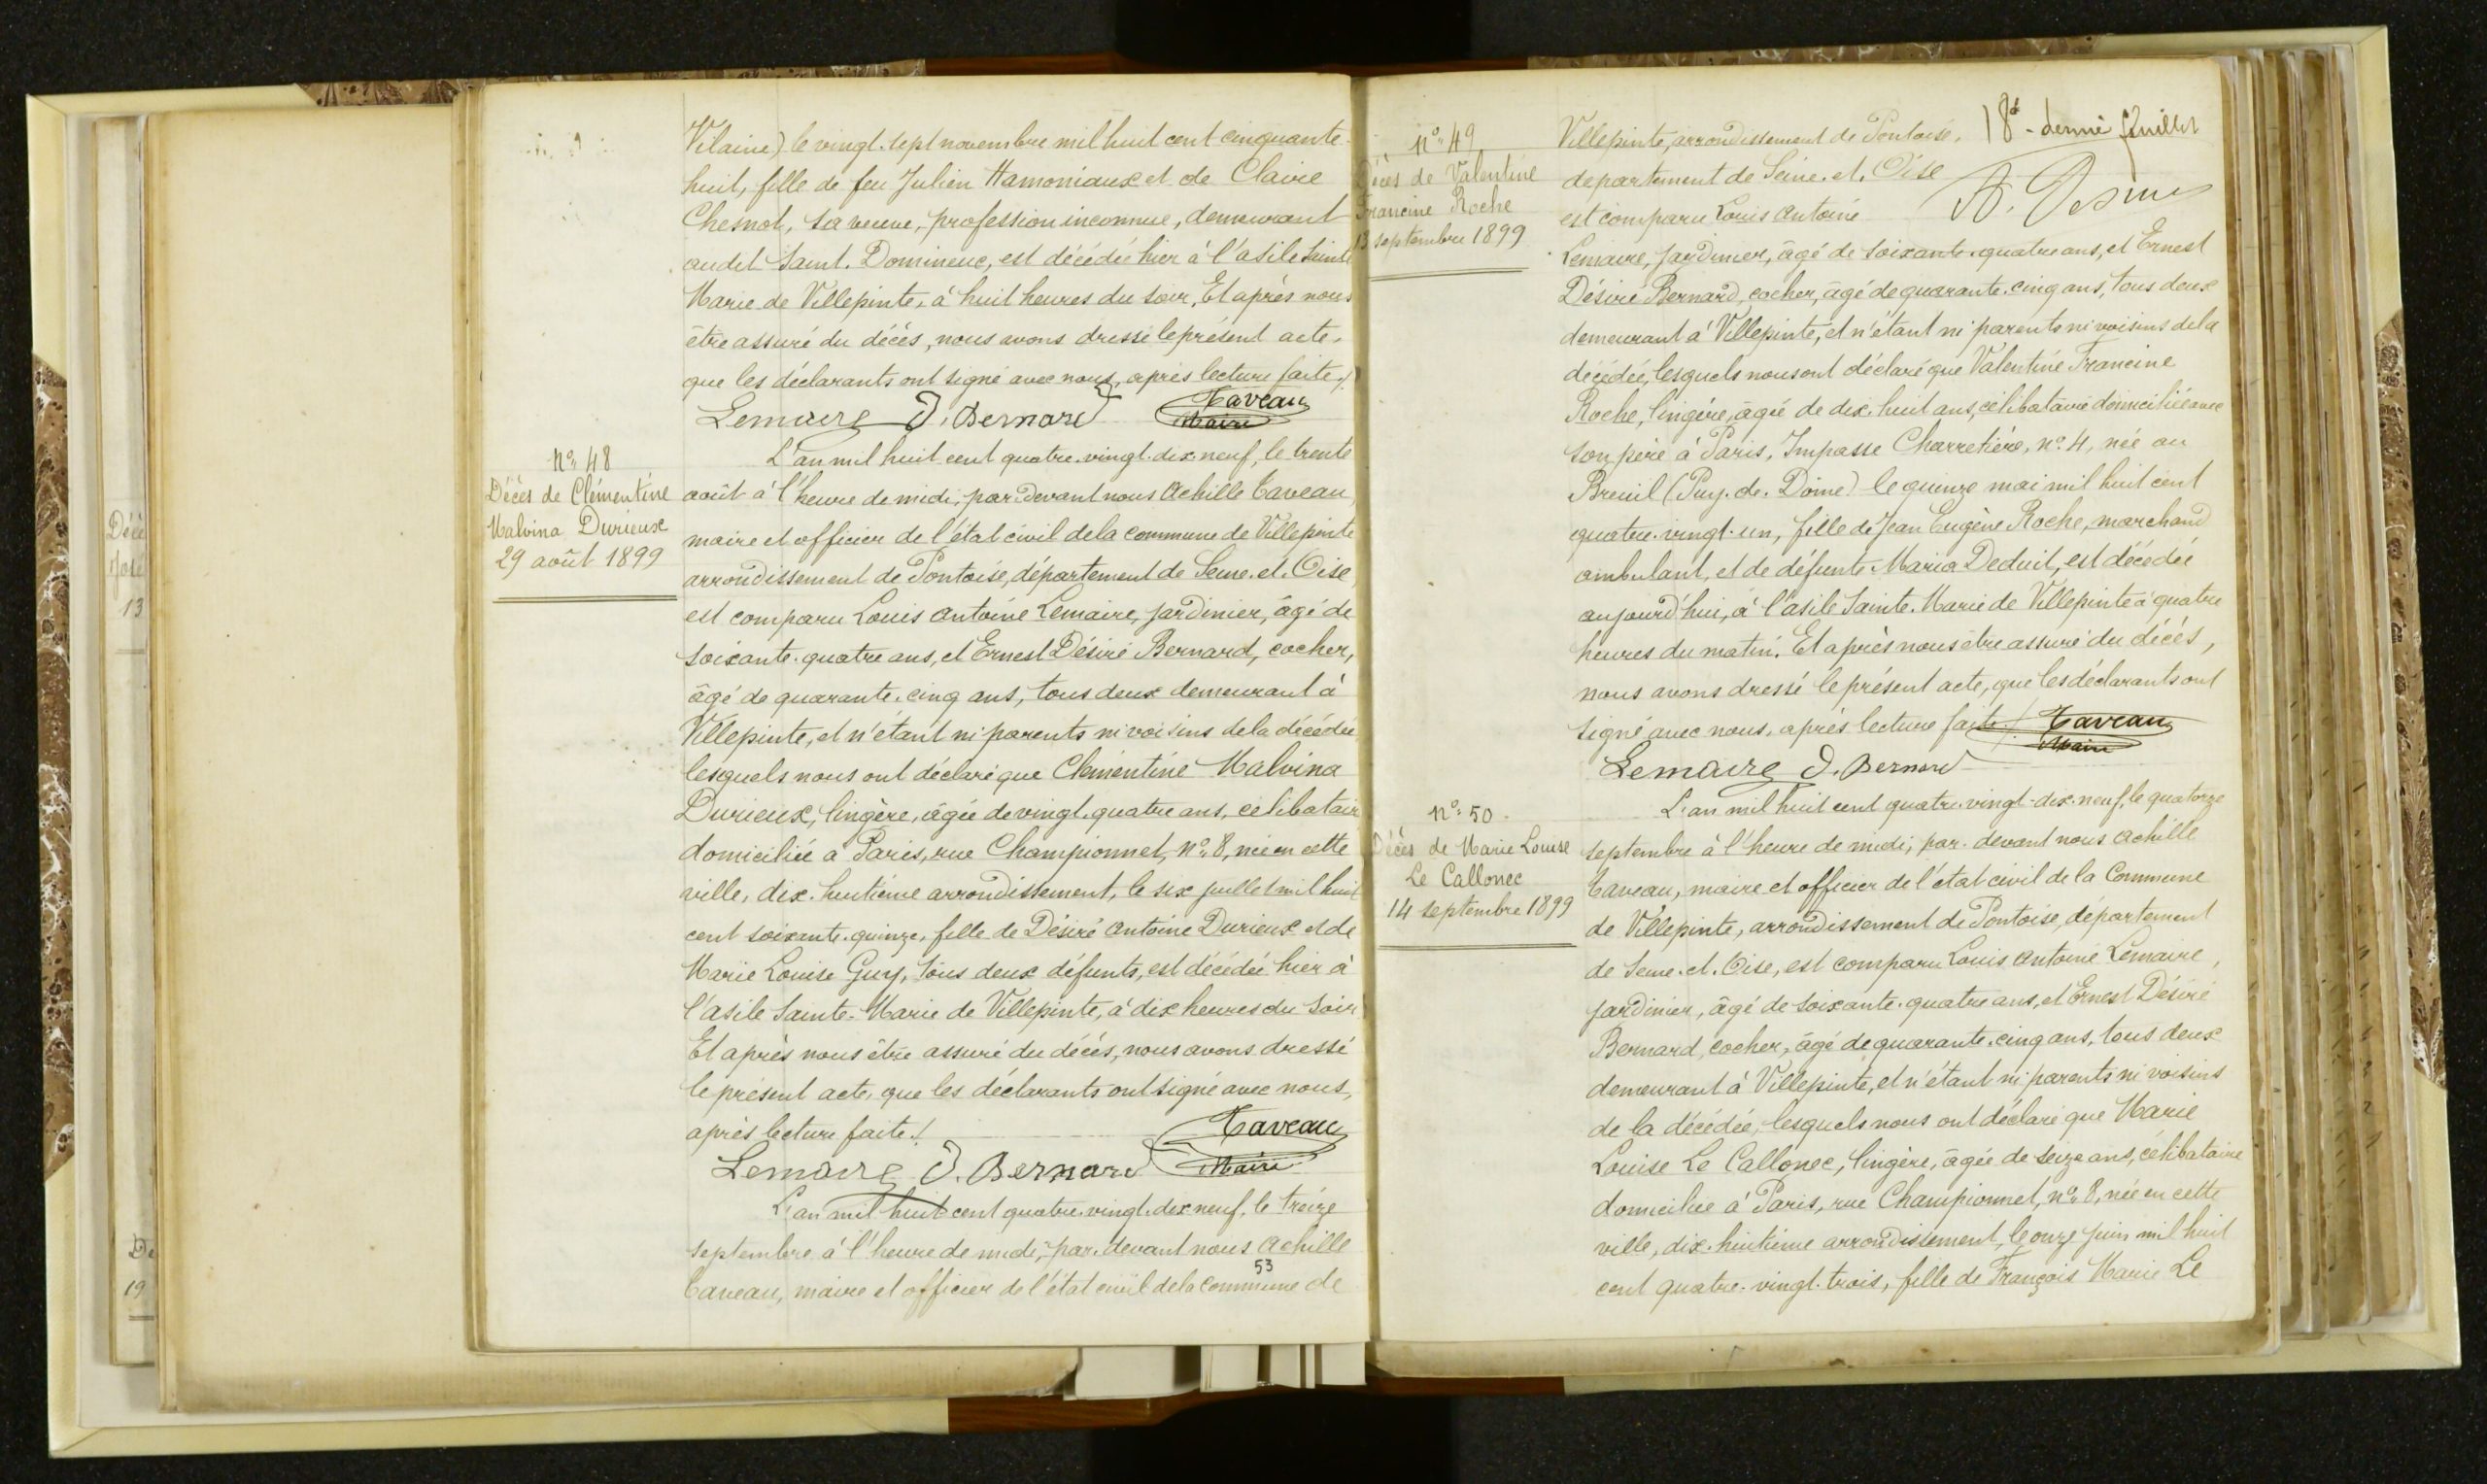 Vilaine) le vingt-sept novembre mil huit cent cinquante-
huit, fille de feu Julien Hamoniaux et de Claire
Chesnot, sa veuve, profession inconnue, demeurant
audit Saint-Domineuc, est décédée hier à l'asile Sainte
Marie de Villepinte, à huit heures du soir, Et après nous
être assuré du décès, nous avons dressé le présent acte,
que les déclarants ont signé avec nous, après lecture faite./.
Lemaire D. Bernard Taveau
Maire
N° 48
Décès de Clémentine
Malvina Durieux
29 août 1899
L'an mil huit cent quatre-vingt-dix-neuf, le trente
août à l'heure de midi, par-devant nous Achille Taveau
maire et officier de l'état civil de la commune de Villepinte
arrondissement de Pontoise, département de Seine-et-Oise
est comparu Louis Antoine Lemaire, jardinier, âgé de
soixante-quatre ans, et Ernest Désiré Bernard, cocher,
âgé de quarante-cinq ans, tous deux demeurant à
Villepinte, et n'étant ni parents ni voisins de la décédée
lesquels nous ont déclaré que Clémentine Malvina
Durieux, lingère, âgée de vingt-quatre ans, célibataire
domiciliée à Paris, rue Championnet, N° 8, née en cette
ville, dix-huitième arrondissement, le six juillet mil huit
cent soixante-quinze, fille de Désiré Antoine Durieux et de
Marie Louise Guy, tous deux défunts, est décédée hier à
l'asile Sainte-Marie de Villepinte, à dix heures du soir
Et après nous être assuré du décès, nous avons dressé
le présent acte, que les déclarants ont signé avec nous,
après lecture faite./.
Taveau
Lemaire D. Bernard Maire
L'an mil huit cent quatre-vingt-dix-neuf, le treize
septembre à l'heure de midi, par-devant nous Achille
53
Taveau, maire et officier de l'état civil de la commune de
N° 49
Décès de Valentine
Francine Roche
13 septembre 1899
18e - dernier feuillet
Villepinte, arrondissement de Pontoise,
département de Seine-et-Oise
est comparu Louis Antoine
Lemaire, jardinier, âgé de soixante-quatre ans, et Ernest
Désiré Bernard, cocher, âgé de quarante-cinq ans, tous deux
demeurant à Villepinte, et n'étant ni parents ni voisins de la
décédée, lesquels nous ont déclaré que Valentine Francine
Roche, lingère, âgée de dix-huit ans, célibataire domiciliée avec
son père à Paris, Impasse Charretière, n° 4, née au
Breuil (Puy-de-Dôme) le quinze mai mil huit cent
quatre-vingt-un, fille de Jean Eugène Roche, marchand
ambulant, et de défunte Maria Deduit, est décédée
aujourd'hui, à l'asile Sainte-Marie de Villepinte à quatre
heures du matin. Et après nous être assuré du décès,
nous avons dressé le présent acte, que les déclarants ont
signé avec nous, après lecture faite./. Taveau
Maire
Lemaire D. Bernard
N° 50
Décès de Marie Louise
Le Callonec
14 septembre 1899
L'an mil huit cent quatre-vingt-dix-neuf, le quatorze
septembre à l'heure de midi, par-devant nous Achille
Taveau, maire et officier de l'état civil de la Commune
de Villepinte, arrondissement de Pontoise, département
de Seine-et-Oise, est comparu Louis Antoine Lemaire,
jardinier, âgé de soixante-quatre ans, et Ernest Désiré
Bernard, cocher, âgé de quarante-cinq ans, tous deux
demeurant à Villepinte, et n'étant ni parents ni voisins
de la décédée, lesquels nous ont déclaré que Marie
Louise Le Callonec, lingère, âgée de seize ans, célibataire
domiciliée à Paris, rue Championnet, n° 8, née en cette
ville, dix-huitième arrondissement, le onze juin mil huit
cent quatre-vingt-trois, fille de François Marie Le